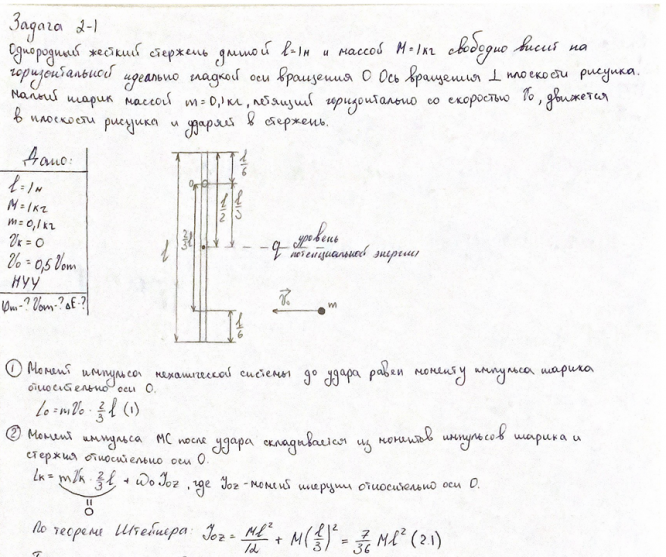 Задача 2-1
Однородный жесткий стержень длиной l=1м и массой M=1кг свободно висит на
горизонтальной идеально гладкой оси вращения O Ось вращения ⊥ плоскости рисунка.
Малый шарик массой m=0,1кг, летящий горизонтально со скоростью V₀, движется
в плоскости рисунка и ударяет в стержень.
Дано:
l=1м
M=1кг
m=0,1кг
Vк=0
V₀=0,5 V₀m
НУУ
φm-? V₀m-? ΔE-?
l/6
O
l/2
l/3
2/3 l
l
уровень
потенциальной энергии
V⃗₀
m
l/6
① Момент импульса механической системы до удара равен моменту импульса шарика
относительно оси O.
L₀=mV₀·2/3 l (1)
② Момент импульса МС после удара складывается из моментов импульсов шарика и
стержня относительно оси O.
Lк=mVк·2/3 l + ω₀J₀z, где J₀z-момент инерции относительно оси O.
0
По теореме Штейнера: J₀z = Ml²/12 + M(l/3)² = 7/36 Ml² (2.1)